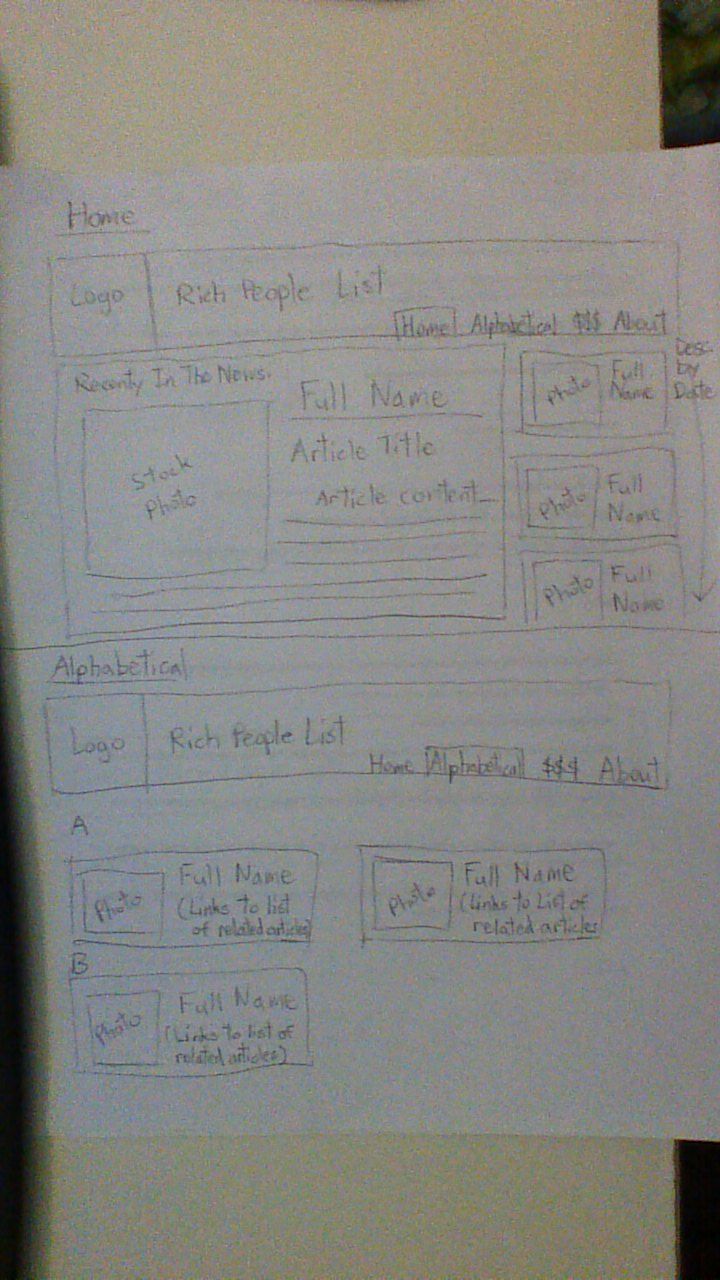 Home
Logo
Rich People List
Home Alphabetical $$$ About
Recently In The News:
Stock
Photo
Full Name
Article Title
Article content...
Photo
Full
Name
Desc.
by
Date
Photo
Full
Name
Photo
Full
Name
Alphabetical
Logo
Rich People List
Home Alphabetical $$$ About
A
Photo
Full Name
(Links to list
of related articles)
Photo
Full Name
(Links to List of
related articles
B
Photo
Full Name
(Links to list of
related articles)